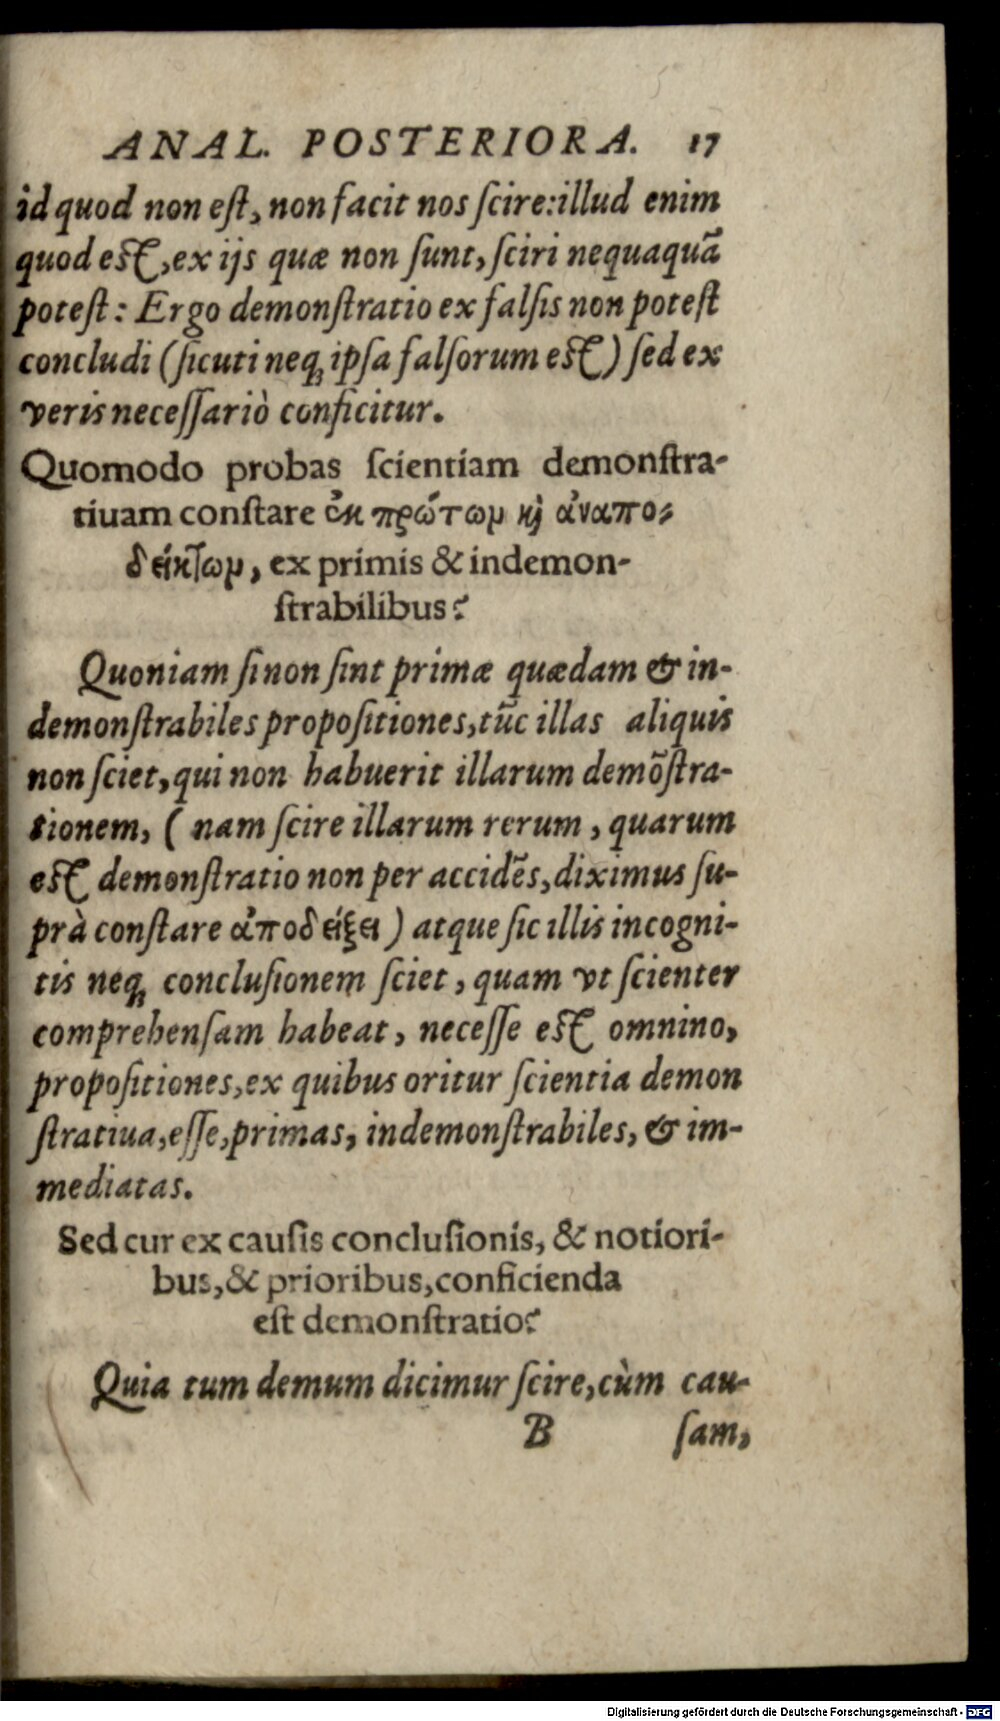 ANAL. POSTERIORA. 17
id quod non eſt, non facit nos ſcire: illud enim
quod eſt, ex ijs quæ non ſunt, ſciri nequaquā
poteſt: Ergo demonſtratio ex falſis non poteſt
concludi (ſicuti neq; ipſa falſorum eſt) ſed ex
veris neceſſariò conficitur.
Quomodo probas ſcientiam demonſtra-
tiuam conſtare ἐκ πρώτων καὶ ἀναπο-
δείκτων, ex primis & indemon-
ſtrabilibus?
Quoniam ſi non ſint primæ quædam & in-
demonſtrabiles propoſitiones, tūc illas aliquis
non ſciet, qui non habuerit illarum demōſtra-
tionem, ( nam ſcire illarum rerum, quarum
eſt demonſtratio non per accidēs, diximus ſu-
prà conſtare ἀποδείξει ) atque ſic illis incogni-
tis neq; concluſionem ſciet, quam vt ſcienter
comprehenſam habeat, neceſſe eſt omnino,
propoſitiones, ex quibus oritur ſcientia demon
ſtratiua, eſſe, primas, indemonſtrabiles, & im-
mediatas.
Sed cur ex cauſis concluſionis, & notiori-
bus, & prioribus, conficienda
eſt demonſtratio?
Quia tum demum dicimur ſcire, cùm cau-
B ſam,
Digitalisierung gefördert durch die Deutsche Forschungsgemeinschaft - DFG